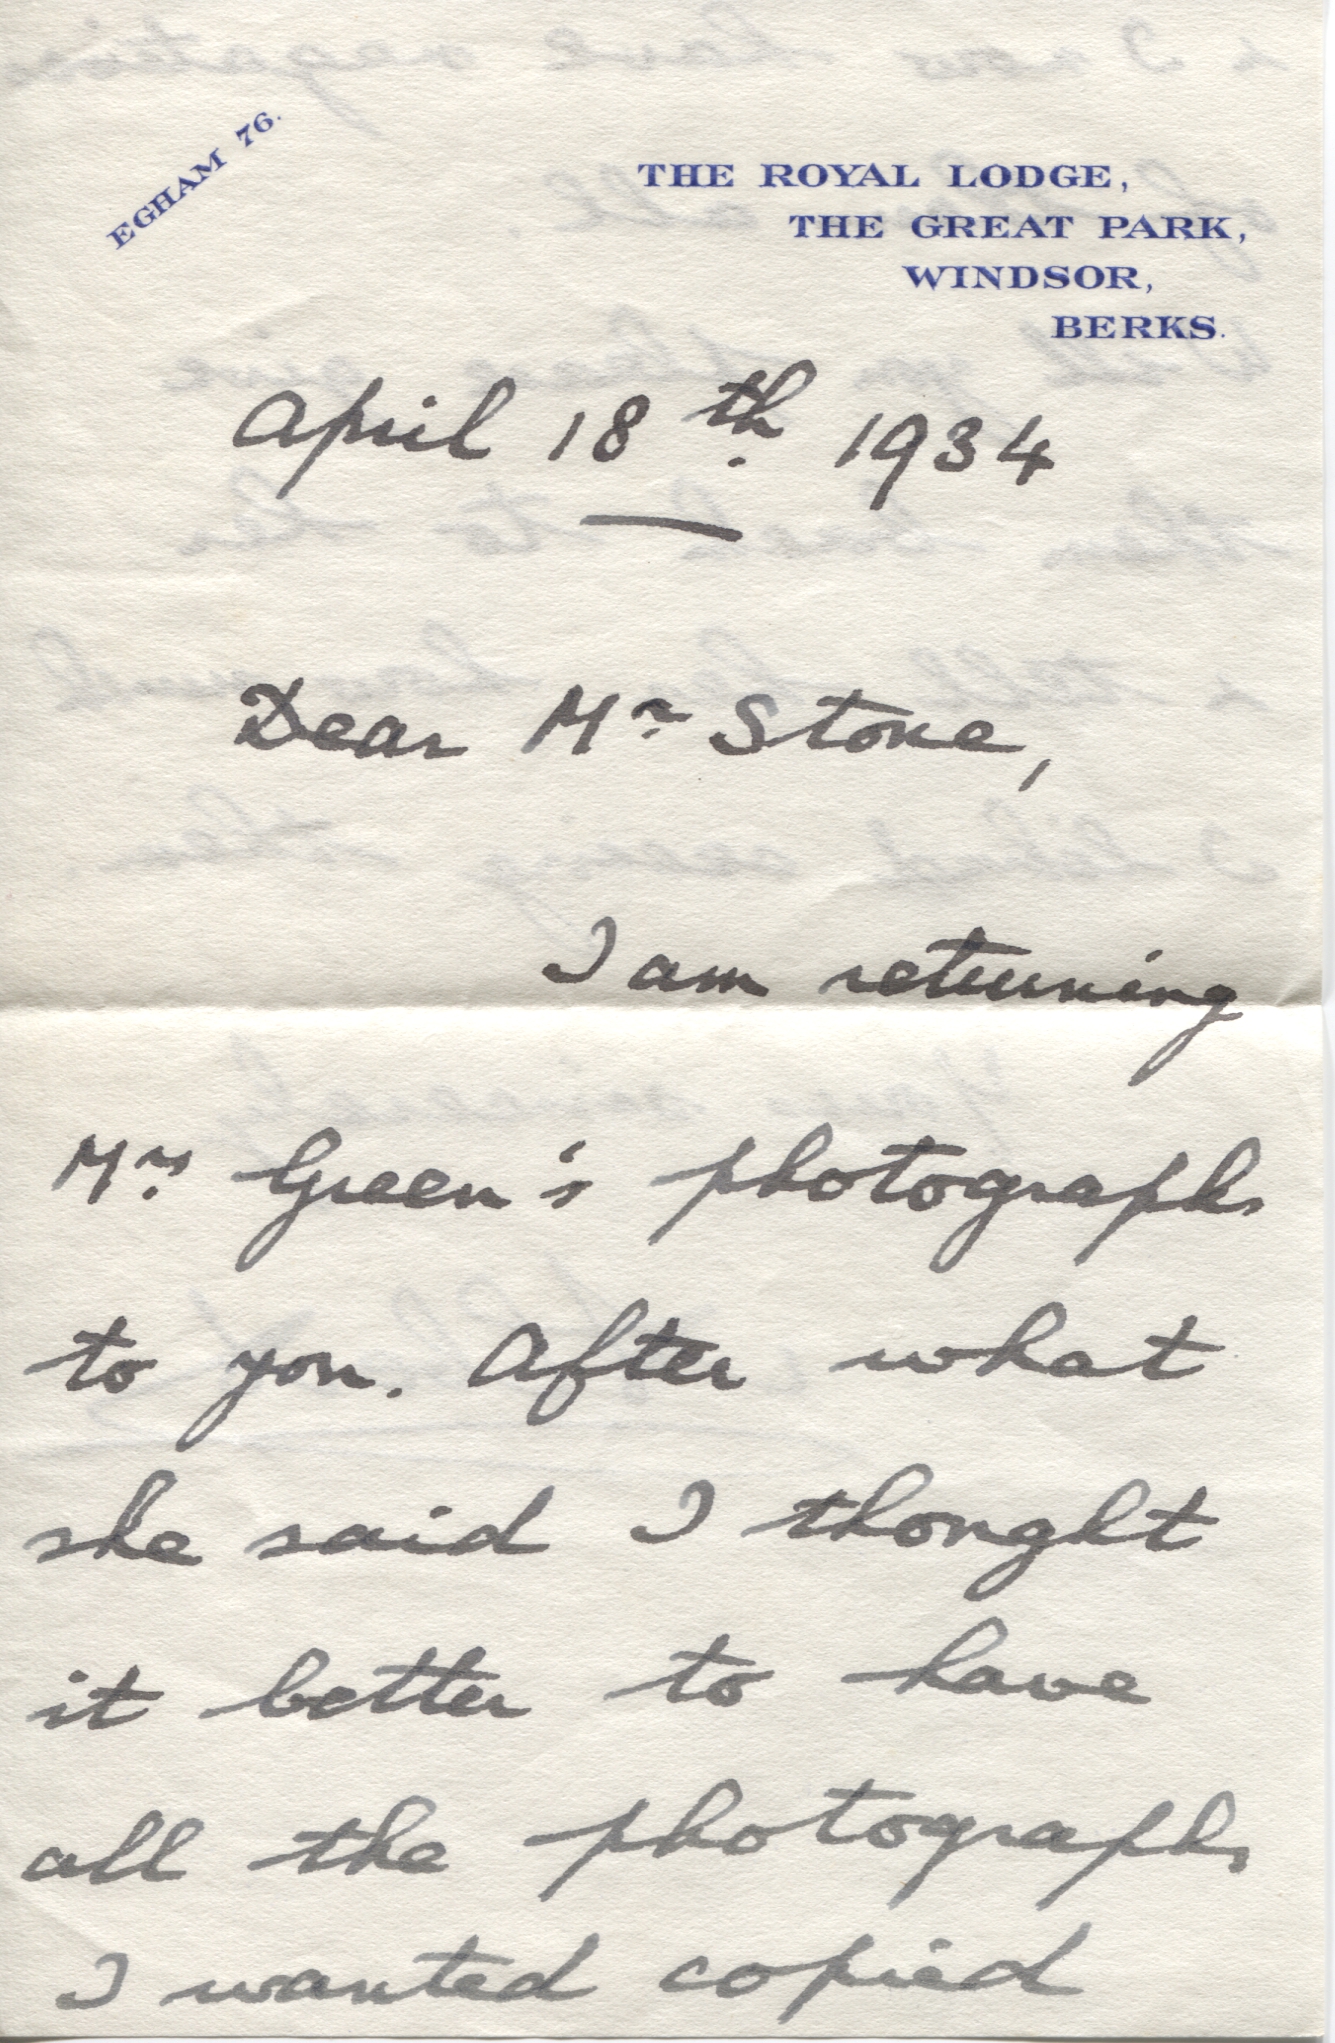 EGHAM 76.
THE ROYAL LODGE,
THE GREAT PARK,
WINDSOR,
BERKS.
April 18th. 1934
Dear Mr Stone,
I am returning
Mrs Green's photographs
to you. After what
she said I thought
it better to have
all the photographs
I wanted copied